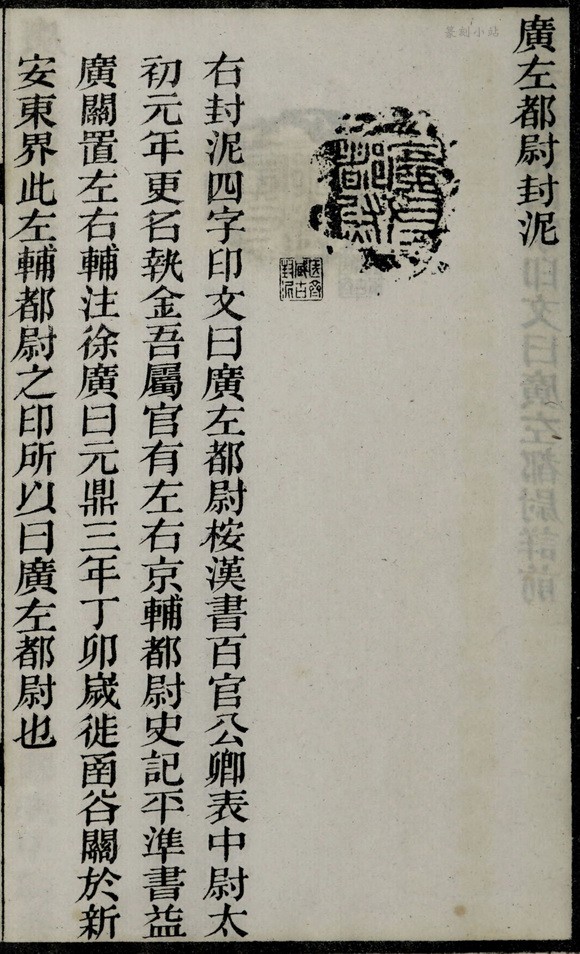 廣左都尉封泥
篆刻小站
廣左都尉
右封泥四字印文曰廣左都尉桉漢書百官公卿表中尉太
初元年更名執金吾屬官有左右京輔都尉史記平準書益
廣關置左右輔注徐廣曰元鼎三年丁卯嵗徙函谷關於新
安東界此左輔都尉之印所以曰廣左都尉也
印文曰廣左都尉詳前